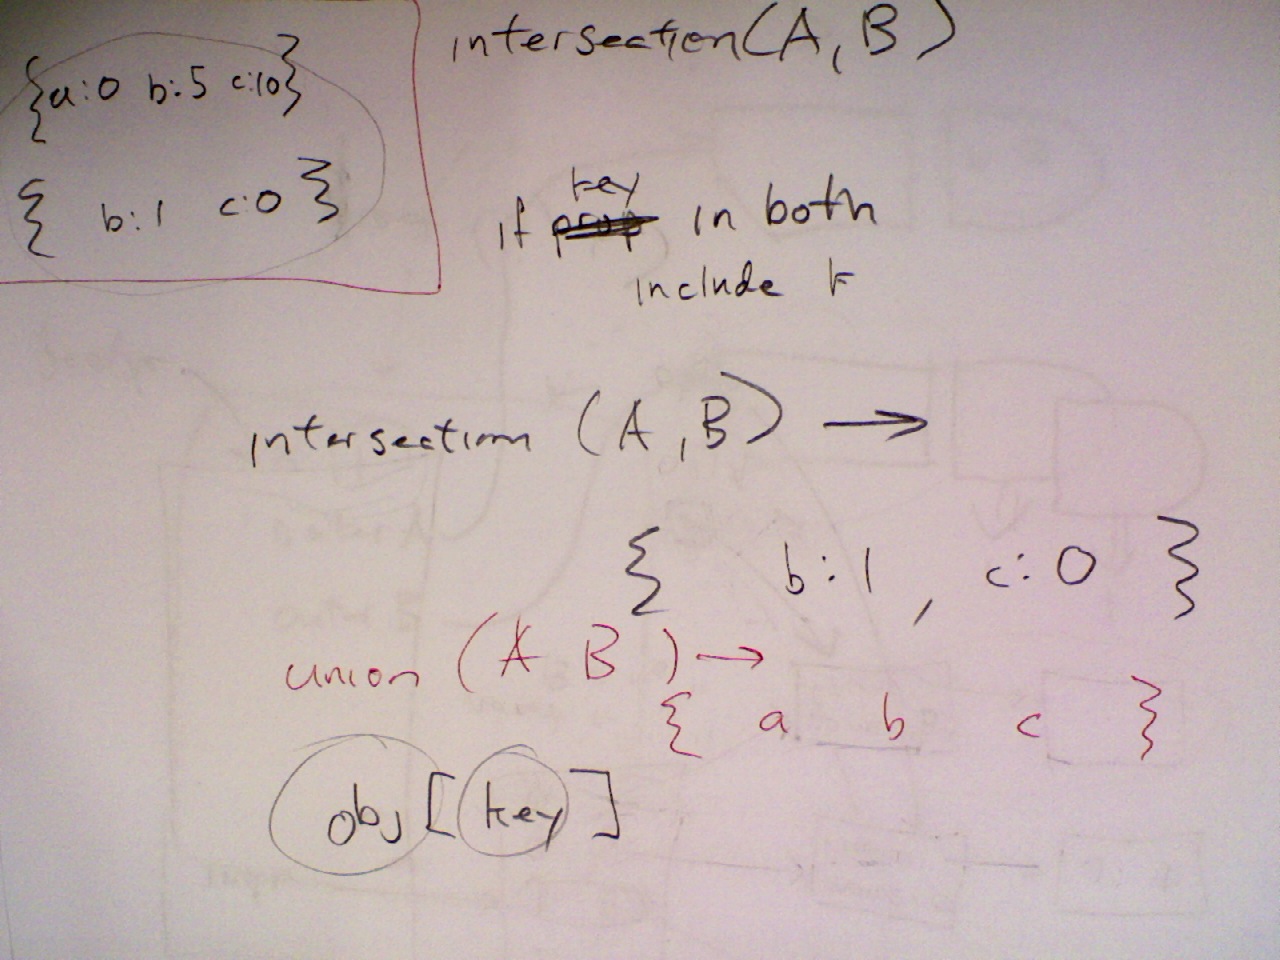 {a:0 b:5 c:10}
{ b:1 c:0 }
intersection(A, B)
key
if prop in both
include k
intersection (A, B) →
{ b:1, c:0 }
union (A B) →
{ a b c }
obj[key]